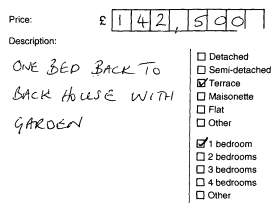 Price: £ 142,500
Description:
ONE BED BACK TO
BACK HOUSE WITH
GARDEN
Detached
Semi-detached
Terrace
Maisonette
Flat
Other
1 bedroom
2 bedrooms
3 bedrooms
4 bedrooms
Other